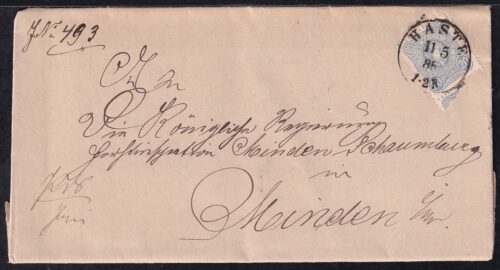 J. N: 493
HASTE
11 5
85
1-2N
An
Die Königliche Regierung
Forstinspection Minden Schaumburg
in
Minden